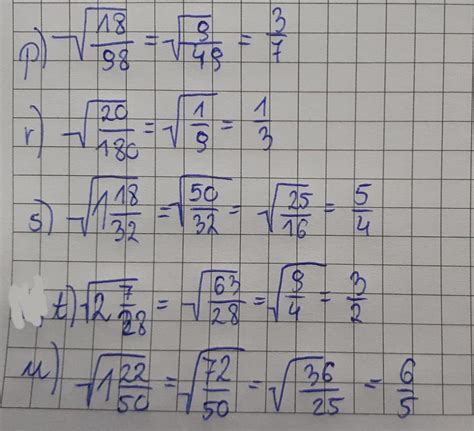 p) √18/98 = √9/49 = 3/7
r) √20/180 = √1/9 = 1/3
s) √1 18/32 = √50/32 = √25/16 = 5/4
t) √2 7/28 = √63/28 = √9/4 = 3/2
u) √1 22/50 = √72/50 = √36/25 = 6/5